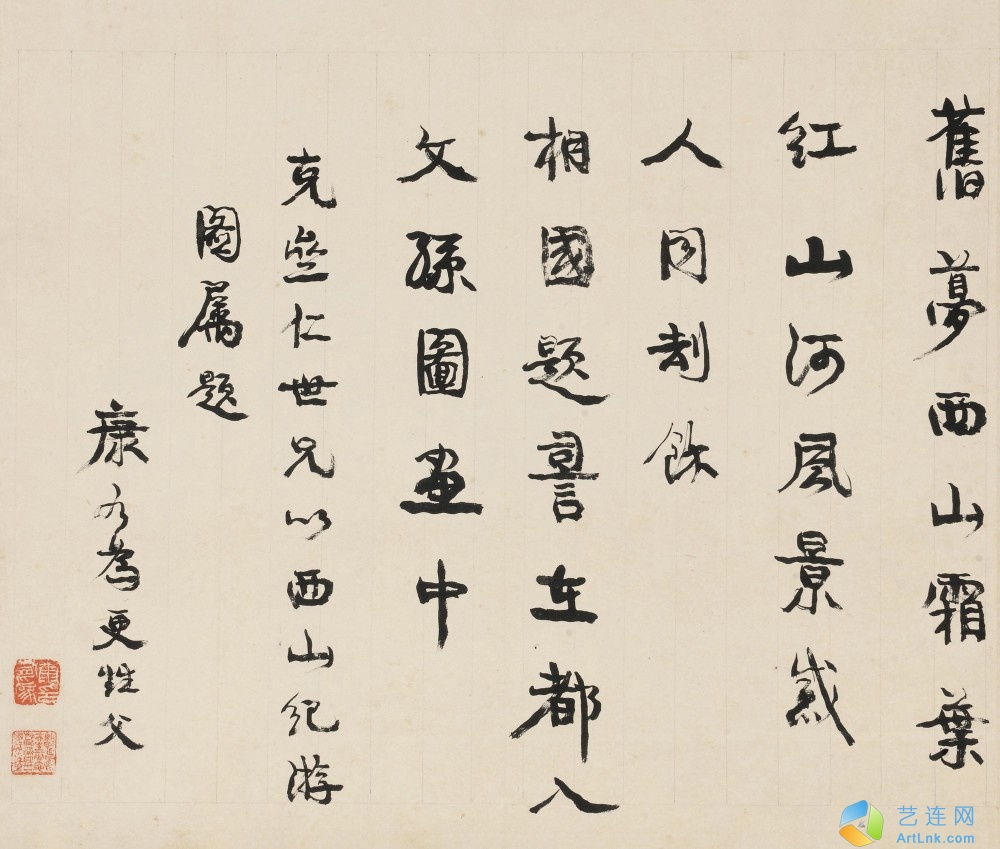 舊夢西山霜葉
紅山河風景感
人同刦餘
相國題䛐在都入
文孫圖畫中
克仁世兄以西山紀游
圖屬題
康有為更甡父
艺连网
ArtLnk.com